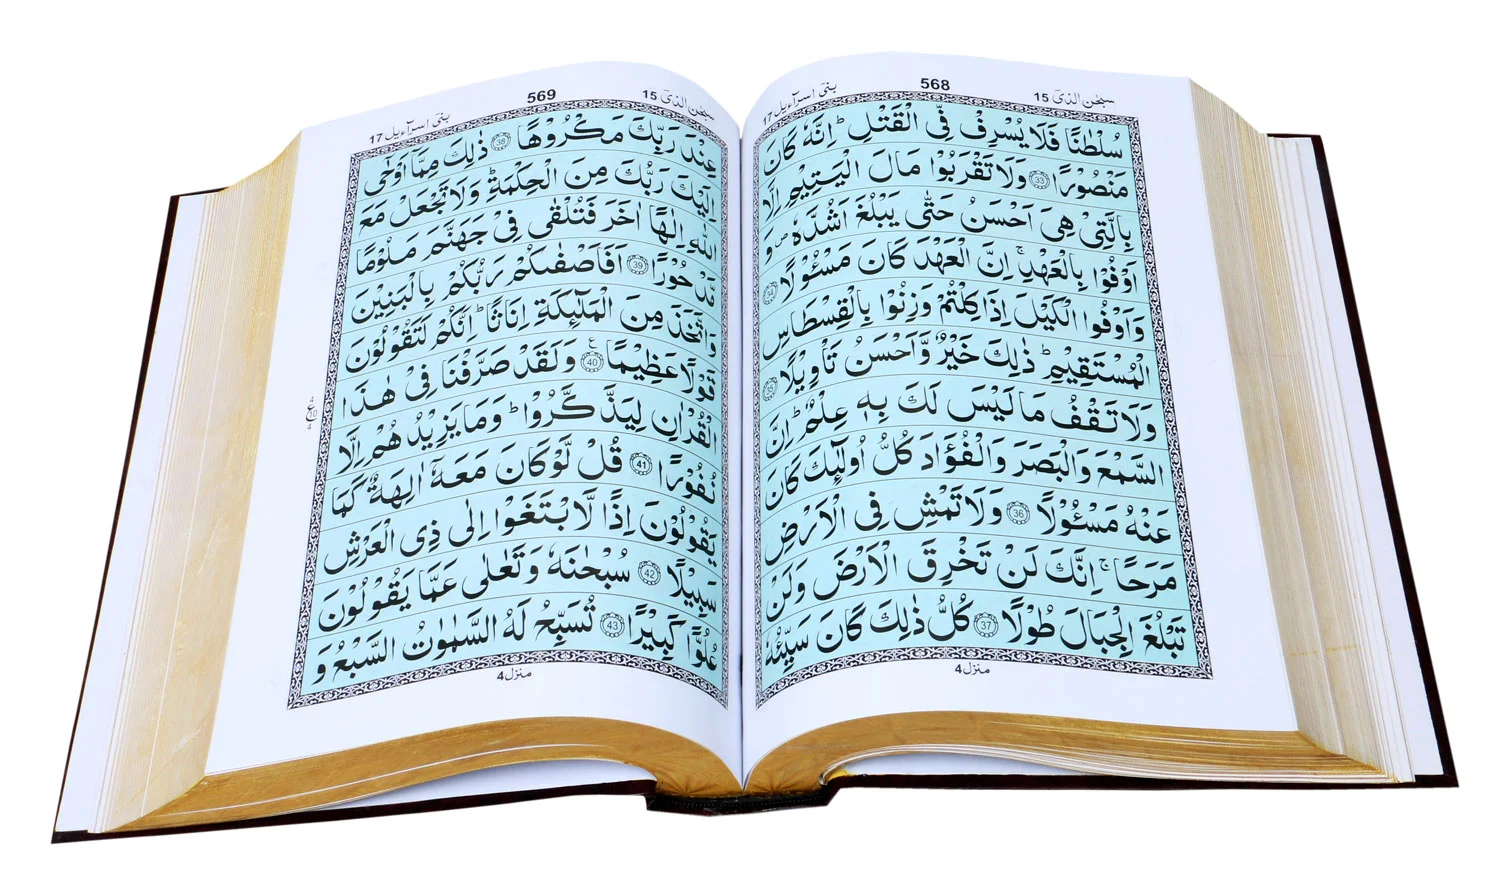 بنی اسرآءیل 17
568
سبحٰن الذیٓ 15
سُلْطٰنًا فَلَا يُسْرِفْ فِّى الْقَتْلِ ؕ اِنَّهٗ كَانَ
مَنْصُوْرًا 33 وَلَا تَقْرَبُوْا مَالَ الْيَتِيْمِ اِلَّا
بِالَّتِىْ هِىَ اَحْسَنُ حَتّٰى يَبْلُغَ اَشُدَّهٗ ۪ وَ
اَوْفُوْا بِالْعَهْدِ ۚ اِنَّ الْعَهْدَ كَانَ مَسْئُوْلًا 34
وَ اَوْفُوا الْكَيْلَ اِذَا كِلْتُمْ وَزِنُوْا بِالْقِسْطَاسِ
الْمُسْتَقِيْمِ ؕ ذٰلِكَ خَيْرٌ وَّاَحْسَنُ تَاْوِيْلًا 35
وَلَا تَقْفُ مَا لَيْسَ لَكَ بِهٖ عِلْمٌ ؕ اِنَّ
السَّمْعَ وَالْبَصَرَ وَالْفُؤَادَ كُلُّ اُولٰٓئِكَ كَانَ
عَنْهُ مَسْئُوْلًا 36 وَلَا تَمْشِ فِى الْاَرْضِ
مَرَحًا ۚ اِنَّكَ لَنْ تَخْرِقَ الْاَرْضَ وَلَنْ
تَبْلُغَ الْجِبَالَ طُوْلًا 37 كُلُّ ذٰلِكَ كَانَ سَيِّئُهٗ
منزل 4
بنی اسرآءیل 17
569
سبحٰن الذیٓ 15
عِنْدَ رَبِّكَ مَكْرُوْهًا 38 ذٰلِكَ مِمَّاۤ اَوْحٰۤى
اِلَيْكَ رَبُّكَ مِنَ الْحِكْمَةِ ؕ وَلَا تَجْعَلْ مَعَ
اللّٰهِ اِلٰهًا اٰخَرَ فَتُلْقٰى فِىْ جَهَنَّمَ مَلُوْمًا
مَّدْحُوْرًا 39 اَفَاَصْفٰىكُمْ رَبُّكُمْ بِالْبَنِيْنَ
وَاتَّخَذَ مِنَ الْمَلٰٓئِكَةِ اِنَاثًا ؕ اِنَّكُمْ لَتَقُوْلُوْنَ
قَوْلًا عَظِيْمًا 40 ع وَلَقَدْ صَرَّفْنَا فِىْ هٰذَا
الْقُرْاٰنِ لِيَذَّكَّرُوْا ؕ وَمَا يَزِيْدُهُمْ اِلَّا
نُفُوْرًا 41 قُلْ لَّوْ كَانَ مَعَهٗۤ اٰلِهَةٌ كَمَا
يَقُوْلُوْنَ اِذًا لَّابْتَغَوْا اِلٰى ذِى الْعَرْشِ
سَبِيْلًا 42 سُبْحٰنَهٗ وَتَعٰلٰى عَمَّا يَقُوْلُوْنَ
عُلُوًّا كَبِيْرًا 43 تُسَبِّحُ لَهُ السَّمٰوٰتُ السَّبْعُ وَ
منزل 4